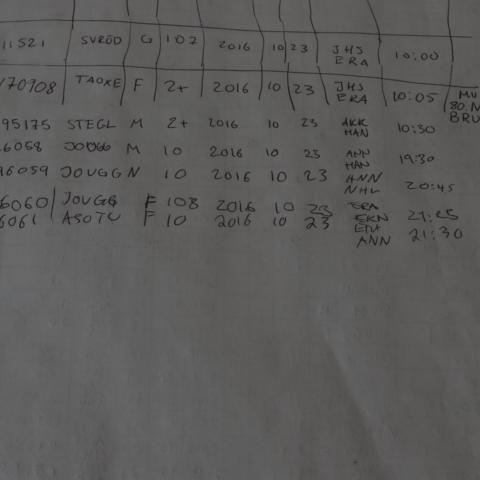 11521 SVRÖD G 107 2016 10 23 JHS ERA 10:00
170908 TAOXE F 2+ 2016 10 23 JHS ERA 10:05 MU 80.N BRU
95175 STEGL M 2+ 2016 10 23 AKK HAN 10:30
6058 JOUGG M 10 2016 10 23 ANN HAN 19:30
6059 JOUGG N 10 2016 10 23 ANN NHL 20:45
6060 JOUGG F 108 2016 10 23 ERA EKN 21:25
6061 ASOTU F 10 2016 10 23 ANN 21:30